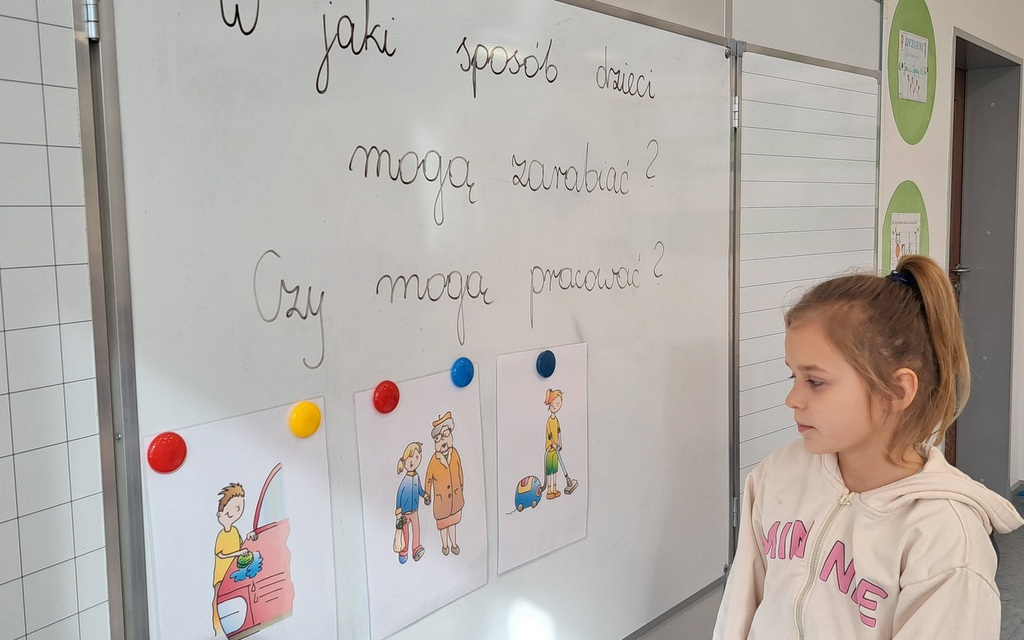 W jaki sposób dzieci
mogą zarabiać?
Czy mogą pracować?
MINNIE